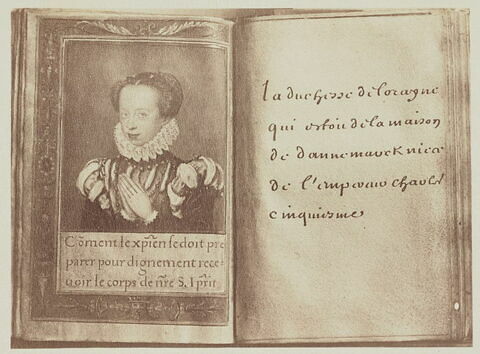 Cõment le xp̃ien se doit pre
parer pour dignement rece-
uoir le corps de nr̃e S. I
la duchesse de loragne
qui estoit de la maison
de dannemarck niece
de l'empereur charles
cinquiesme